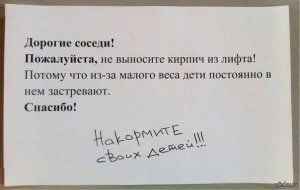 Дорогие соседи!
Пожалуйста, не выносите кирпич из лифта!
Потому что из-за малого веса дети постоянно в
нем застревают.
Спасибо!
Накормите
своих детей!!!